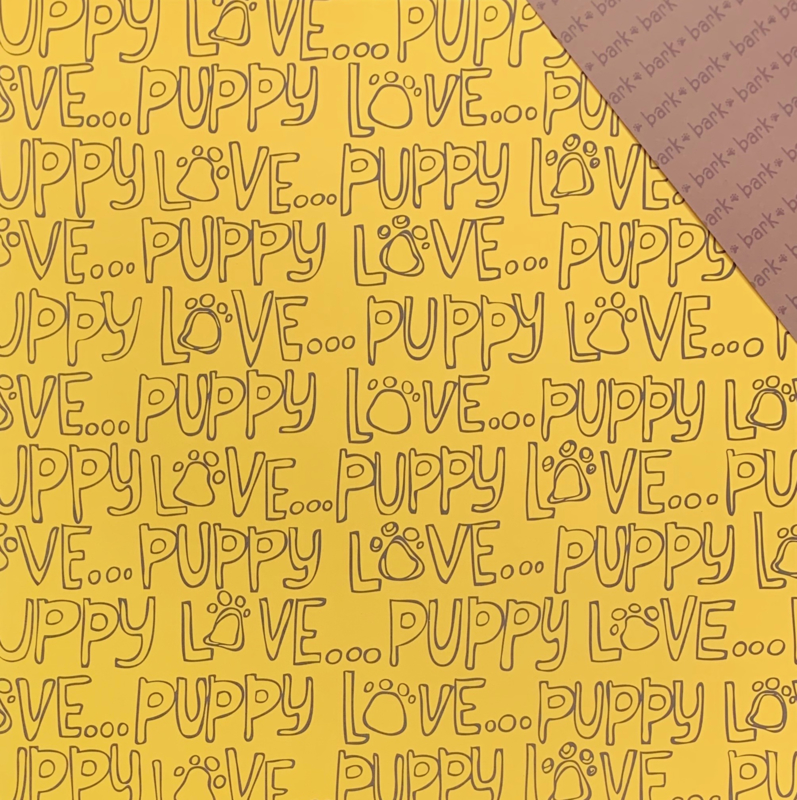 UPPY LOVE... PUPPY
OVE... PUPPY LOVE... PU
UPPY LOVE... PUPPY LOVE.
OVE... PUPPY LOVE... PUPPY
UPPY LOVE... PUPPY LOVE... P
OVE... PUPPY LOVE... PUPPY LO
UPPY LOVE... PUPPY LOVE... PU
OVE... PUPPY LOVE... PUPPY LO
UPPY LOVE... PUPPY LOVE... P
OVE... PUPPY LOVE... PUPPY LO
UPPY LOVE PUPPY LOVE PU
bark bark bark
bark bark bark
bark bark bark
bark bark bark
bark bark bark
bark bark
bark